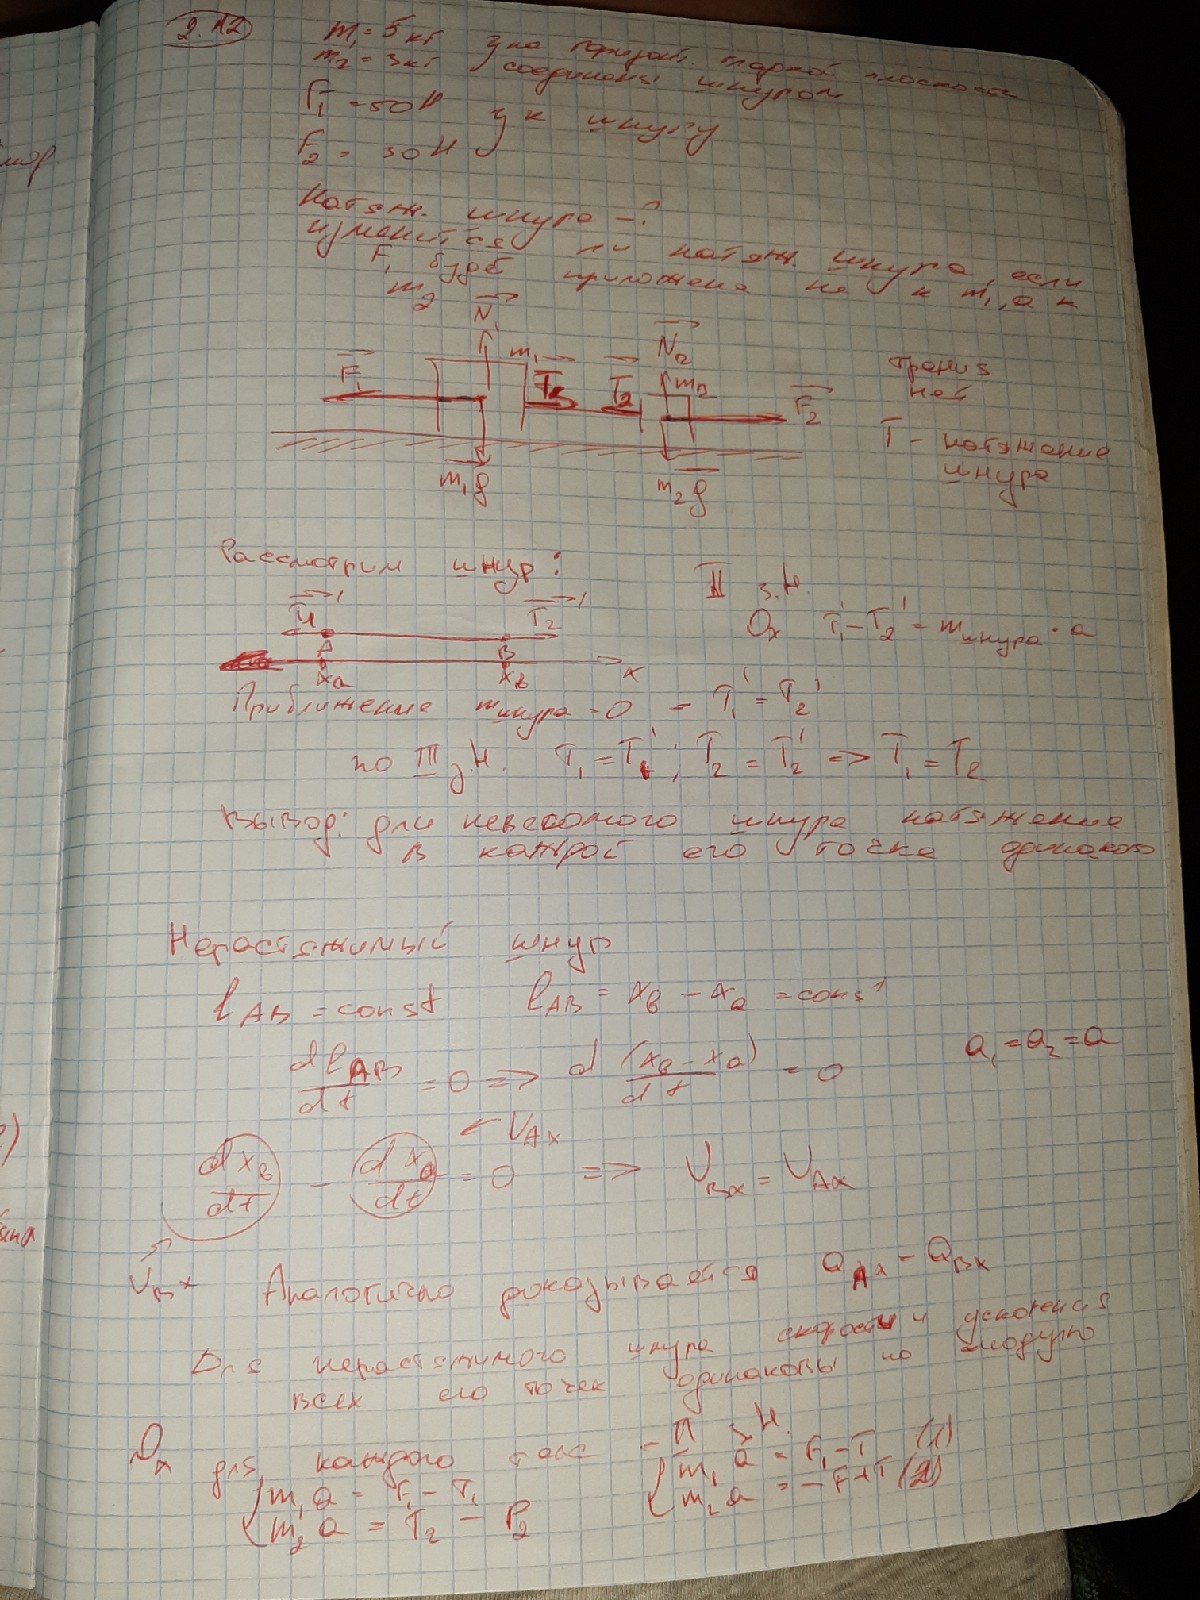 2.12
m₁ = 5 кг } на горизонт. гладкой плоскости
m₂ = 3 кг соединены шнуром
F₁ = 50 Н } к шнуру
F₂ = 30 Н
Натяж. шнура - ?
изменится ли натяж. шнура, если
F₁ будет приложена не к m₁, а к
m₂
N₁ m₁ N₂ m₂
F₁ T₁ T₂ F₂
трения
нет
T - натяжение
шнура
m₁g m₂g
Рассмотрим шнур:
II з.Н.
T₁' T₂'
Ox T₁' - T₂' = m шнура · a
A B
xa xb x
Приближение m шнура = 0 - T₁' = T₂'
по III з.Н. T₁ = T₁'; T₂ = T₂' => T₁ = T₂
Вывод: для невесомого шнура натяжение
в каждой его точке одинаково
Нерастяжимый шнур
l AB = const l AB = xв - xa = const
a₁ = a₂ = a
dl AB / dt = 0 => d (xв - xa) / dt = 0
VAx
dxв / dt - dxa / dt = 0 => VBx = VAx
VBx Аналогично доказывается aAx = aBx
Для нерастяжимого шнура скорости и ускорения
всех его точек одинаковы по модулю
Ox для каждого тела - II з.Н.
{ m₁a = F₁ - T₁ { m₁a = F₁ - T (1)
m₂a = T₂ - F₂ m₂a = - F + T (2)